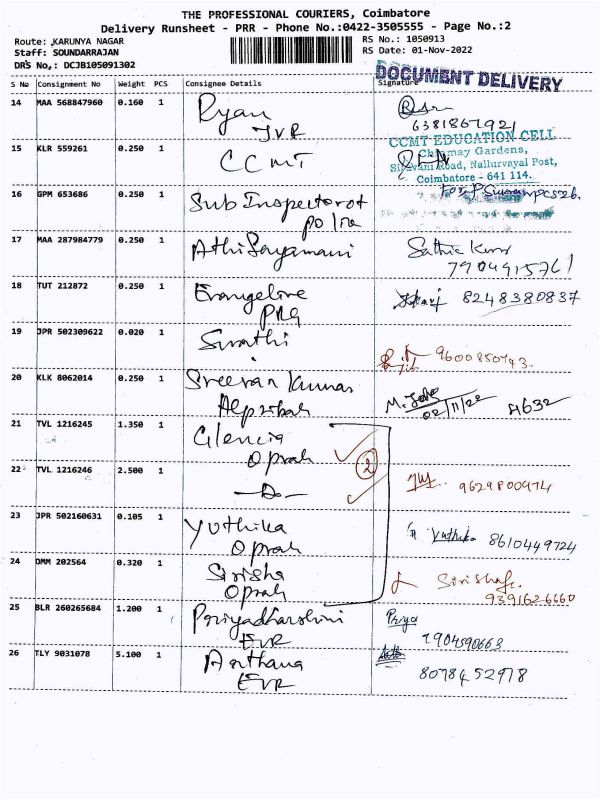 THE PROFESSIONAL COURIERS, Coimbatore
Delivery Runsheet - PRR - Phone No.:0422-3505555 - Page No.:2
Route: KARUNYA NAGAR RS No.: 1050913
Staff: SOUNDARRAJAN RS Date: 01-Nov-2022
DRS No.: DCJB105091302
DOCUMENT DELIVERY
S No Consignment No Weight PCS Consignee Details Signature
14 MAA 568847960 0.160 1 Ryan
JVR 6381867921
15 KLR 559261 0.250 1 CCMT
CCMT EDUCATION CELL
Chinmay Gardens,
Siruvani Road, Nallurvayal Post,
Coimbatore - 641 114.
16 GPM 653686 0.250 1 Sub Inspector of
17 MAA 287984779 0.250 1
7904915761
18 TUT 212872 0.250 1 Evangeline 8248380837
PRG
19 JPR 502309622 0.020 1 9600850743
20 KLK 8062014 0.250 1 Sreeran Kumar
02/11/22 4632
21 TVL 1216245 1.350 1 Glencia
Oprah
2
22 TVL 1216246 2.500 1 -Do- 9629800974
23 JPR 502160631 0.105 1 Yuthika Yuthika 8610449724
Oprah
24 OMM 202564 0.320 1 Sirisha
Oprah 9391626660
25 BLR 260265684 1.200 1 Priyadharshini Priya
EVR 7904590663
26 TLY 9031078 5.100 1
EVR 8078452978